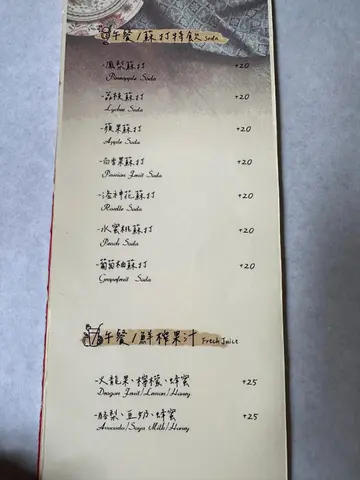 午餐/蘇打特飲 Soda
-鳳梨蘇打 +20
Pineapple Soda
-荔枝蘇打 +20
Lychee Soda
-蘋果蘇打 +20
Apple Soda
-百香果蘇打 +20
Passion Fruit Soda
-洛神花蘇打 +20
Roselle Soda
-水蜜桃蘇打 +20
Peach Soda
-葡萄柚蘇打 +20
Grapefruit Soda
午餐/鮮榨果汁 Fresh Juice
-火龍果、檸檬、蜂蜜 +25
Dragon Fruit/Lemon/Honey
-酪梨、豆奶、蜂蜜 +25
Avocado/Soya Milk/Honey